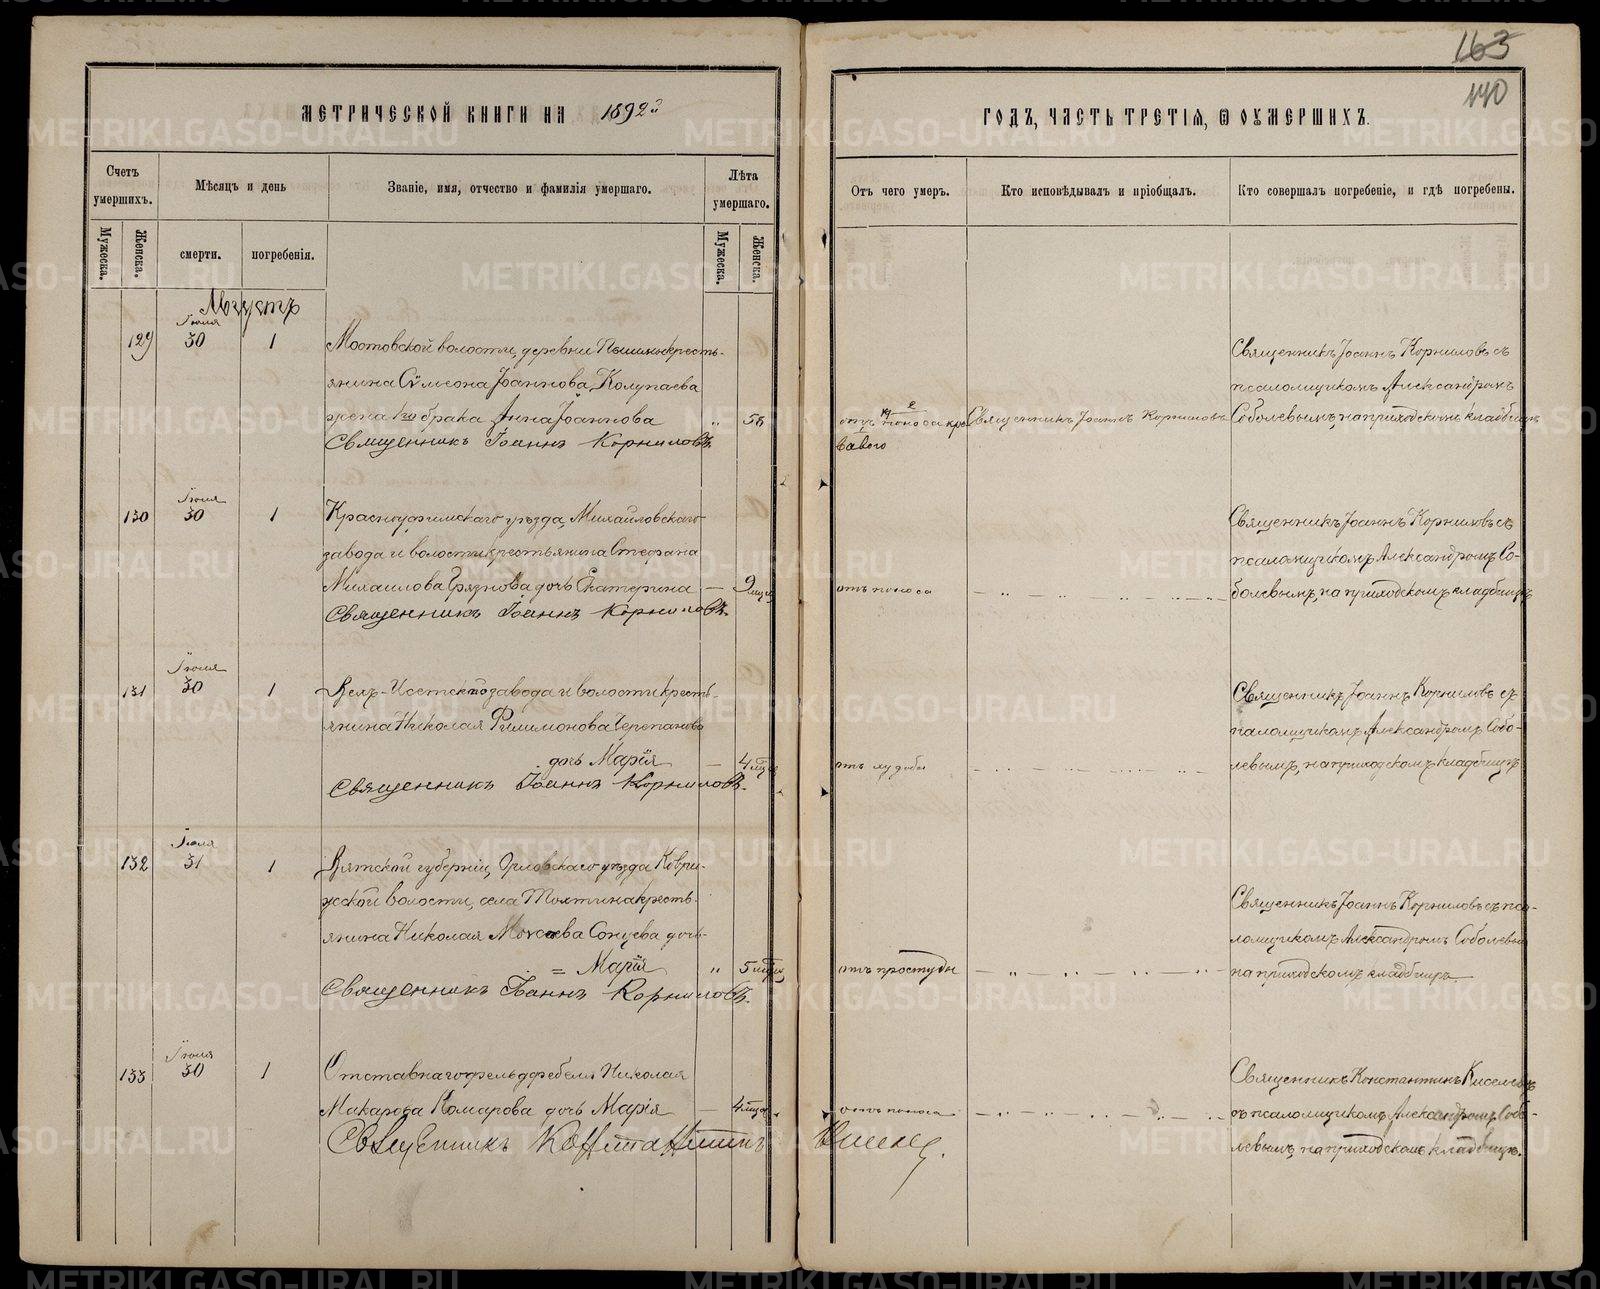 163
140
МЕТРИЧЕСКОЙ КНИГИ НА 1892й
ГОДЪ, ЧАСТЬ ТРЕТІЯ, Ѿ ОУМЕРШИХЪ.
Счетъ умершихъ.
Мѣсяцъ и день
Званіе, имя, отчество и фамилія умершаго.
Лѣта умершаго.
Отъ чего умеръ.
Кто исповѣдывалъ и пріобщалъ.
Кто совершалъ погребеніе, и гдѣ погребены.
Мужеска.
Женска.
смерти.
погребенія.
Мужеска.
Женска.
Августъ
Іюля
129 30 1
Мостовской волости, деревни кресть-
янина Сѵмеона Іоаннова Колупаева
жена 1го брака Анна Іоаннова
Священникъ Іоаннъ Корниловъ.
отъ поноса кро-
ваваго
Священникъ Іоаннъ Корниловъ
Священникъ Іоаннъ Корниловъ съ
псаломщикомъ Александромъ
Соболевымъ, на приходскомъ кладбищѣ
Іюля
130 30 1
Красноуфимскаго уѣзда, Михайловскаго
завода и волости крестьянина Стефана
Михаилова Грязнова дочь Екатерина — 9 мцев
Священникъ Іоаннъ Корниловъ.
отъ поноса
Священникъ Іоаннъ Корниловъ съ
псаломщикомъ Александромъ Со-
болевымъ, на приходскомъ кладбищѣ
Іюля
131 30 1
Верхъ-Исетскаго завода и волости кресть-
янина Николая Филимонова Черепанова
дочь Марія — 4 мцев
Священникъ Іоаннъ Корниловъ.
отъ худобы
Священникъ Іоаннъ Корниловъ съ
псаломщикомъ Александромъ Собо-
левымъ, на приходскомъ кладбищѣ
Іюля
132 31 1
Вятской губерніи, Орловскаго уѣзда Коври-
жской волости, села кресть-
янина Николая Моисеева Сонцева дочь
= Марія „ 5 мцев
Священникъ Іоаннъ Корниловъ.
отъ простуды
Священникъ Іоаннъ Корниловъ съ пса-
ломщикомъ Александромъ Соболевым
на приходскомъ кладбищѣ
Іюля
133 30 1
Отставнаго фельдфебеля Николая
Макарова Комарова дочь Марія — 4 мца
Священникъ Константинъ
отъ поноса
Священникъ Константинъ Киселевъ
съ псаломщикомъ Александромъ Собо-
левымъ, на приходскомъ кладбищѣ.
METRIKI.GASO-URAL.RU